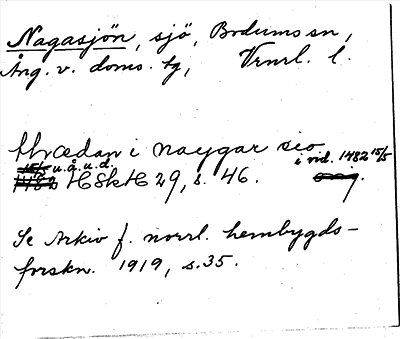 Nagasjön, sjö, Bodums sn,
Ång. v. doms. tg, Vrnrl. l.
thrædan i naygar seo
i vid. 1482 15/5
15/5 u.å.u.d.
1482 HSkH 29, s. 46. orig.
Se Arkiv f. norrl. hembygds-
forskn. 1919, s. 35.